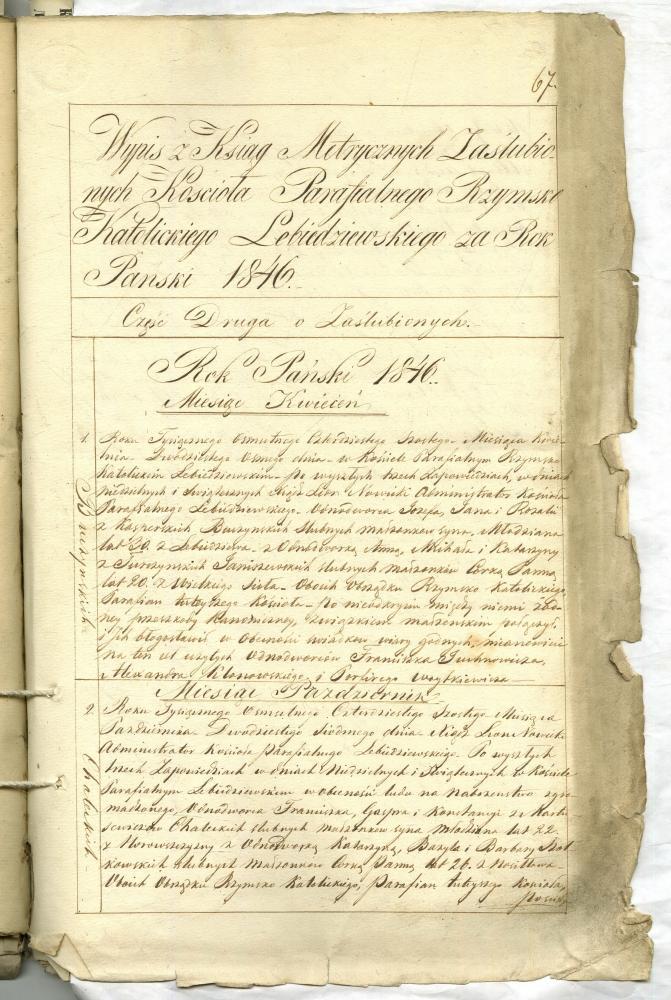 67.
Wypis z Ksiąg Metrycznych Zaślubio-
nych Kościoła Parafialnego Rzymsko
Katolickiego Lebiedziewskiego za Rok
Pański 1846.
Część Druga o Zaślubionych.
Rok Pański 1846.
Miesiąc Kwiecień
1. Roku Tysiącznego Osmsetnego Czterdziestego Szostego Miesiąca Kwie-
tnia Dwódziestego Osmego dnia w Kościele Parafialnym Rzymsko
Katolickim Lebiedziewskim po wyszłych trzech Zapowiedziach, w dniach
niedzielnych i Swiątecznych Xiądz Leon Nowicki Administrator Kościoła
Parafialnego Lebiedziewskiego. Odnodworca Jozefa, Jana i Rozalii
z Kasperskich Buczynskich slubnych małżonkow syna, Młodziana
lat 30. z Lebiedziewa. z Odnodworką Anną, Michała i Katarzyny
z Janiszewskich slubnych małżonkow Corką Panną
lat 20. z Wielkiego Sioła. Oboich Obrządku Rzymsko Katolickiego
Parafian tutejszego Kościoła, po nieodkryciu między niemi żad-
ney przeszkody Kanoniczney, związkiem małżenskim połączył
i ich błogosławił w obecności swiadkow wiary godnych, mianowicie
na ten akt użytych Odnodworcow Franciszka Juchnowicza,
Alexandra Klonowskiego, i Porfirego Woytkiewicza.
Buczynskich
Miesiąc Październik
2. Roku Tysiącznego Osmsetnego Czterdziestego Szostego Miesiąca
Października Dwudziestego Siodmego dnia Xiądz Leon Nowicki
Administrator Kościoła Parafialnego Lebiedziewskiego. Po wyszłych
trzech Zapowiedziach w dniach Niedzielnych i Swiątecznych w Kościele
Parafialnym Lebiedziewskim w obecności ludu na nabożenstwo zgro-
madzonego, Odnodworca Franciszka, Gaspra i Konstancyi z
Chaleckich slubnych małżonkow syna młodziana lat 22.
z z Odnodworką Katarzyną, Bazyla i Barbary
slubnych małżonkow Corką Panną lat 20. z
Oboich Obrządku Rzymsko Katolickiego, Parafian tutejszego Kościoła,
Chaleckich